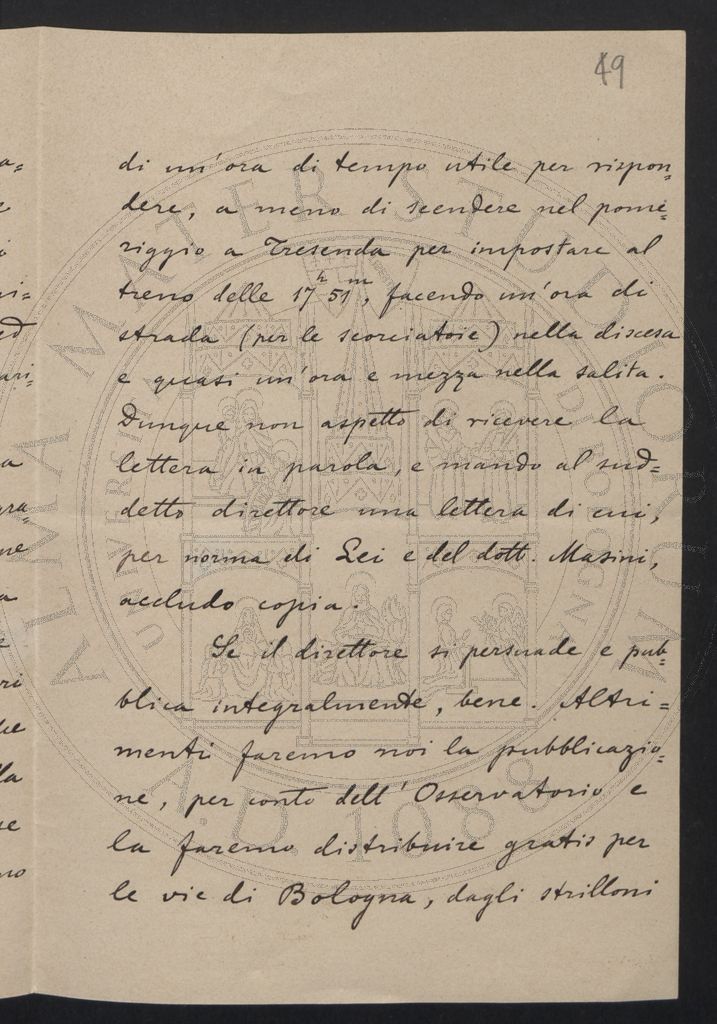 49
di un'ora di tempo utile per rispon=
dere, a meno di scendere nel pome=
riggio a Tresenda per impostare al
treno delle 17h 51m, facendo un'ora di
strada (per le scorciatoie) nella discesa
e quasi un'ora e mezza nella salita.
Dunque non aspetto di ricevere la
lettera in parola, e mando al sud=
detto direttore una lettera di cui,
per norma di Lei e del dott. Masini,
accludo copia.
Se il direttore si persuade e pub=
blica integralmente, bene. Altri=
menti faremo noi la pubblicazio=
ne, per conto dell'Osservatorio e
la faremo distribuire gratis per
le vie di Bologna, dagli strilloni
ALMA MATER STUDIORUM
A.D. 1088